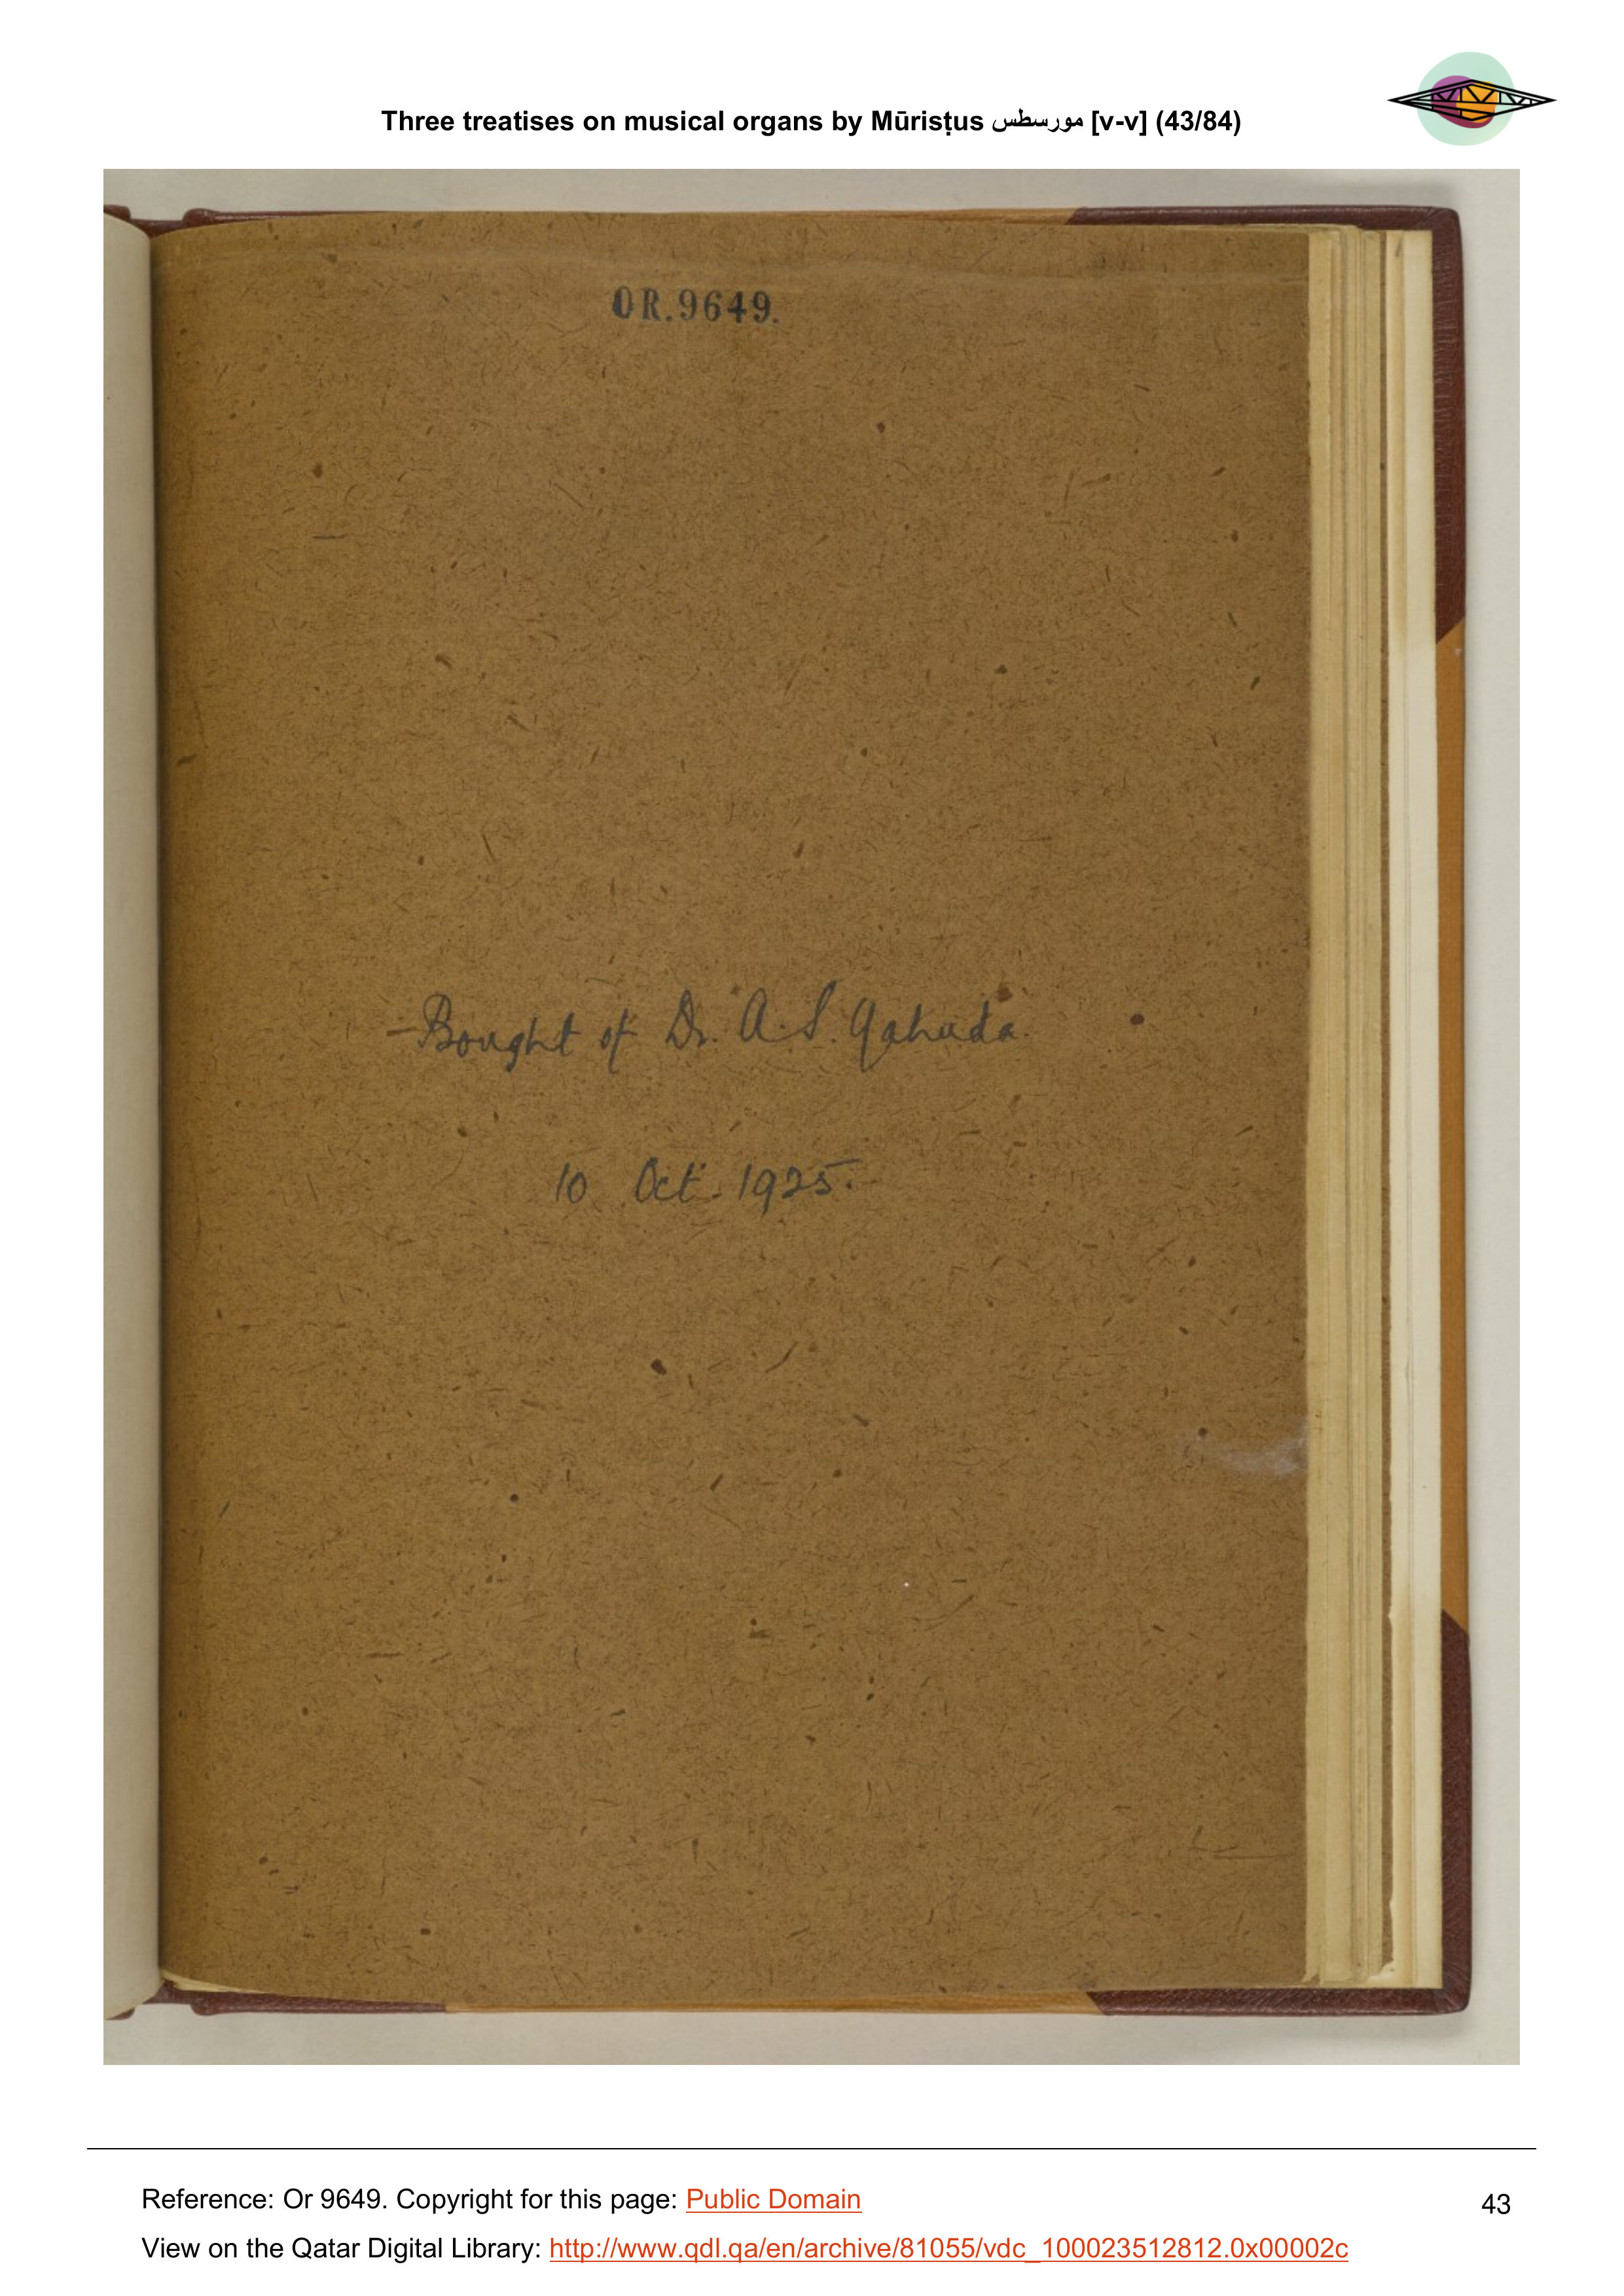 Three treatises on musical organs by Mūrisṭus مورسطس [v-v] (43/84)
OR.9649.
Bought of Dr. A. S. Yahuda.
10 Oct. 1925.
Reference: Or 9649. Copyright for this page: Public Domain
43
View on the Qatar Digital Library: http://www.qdl.qa/en/archive/81055/vdc_100023512812.0x00002c